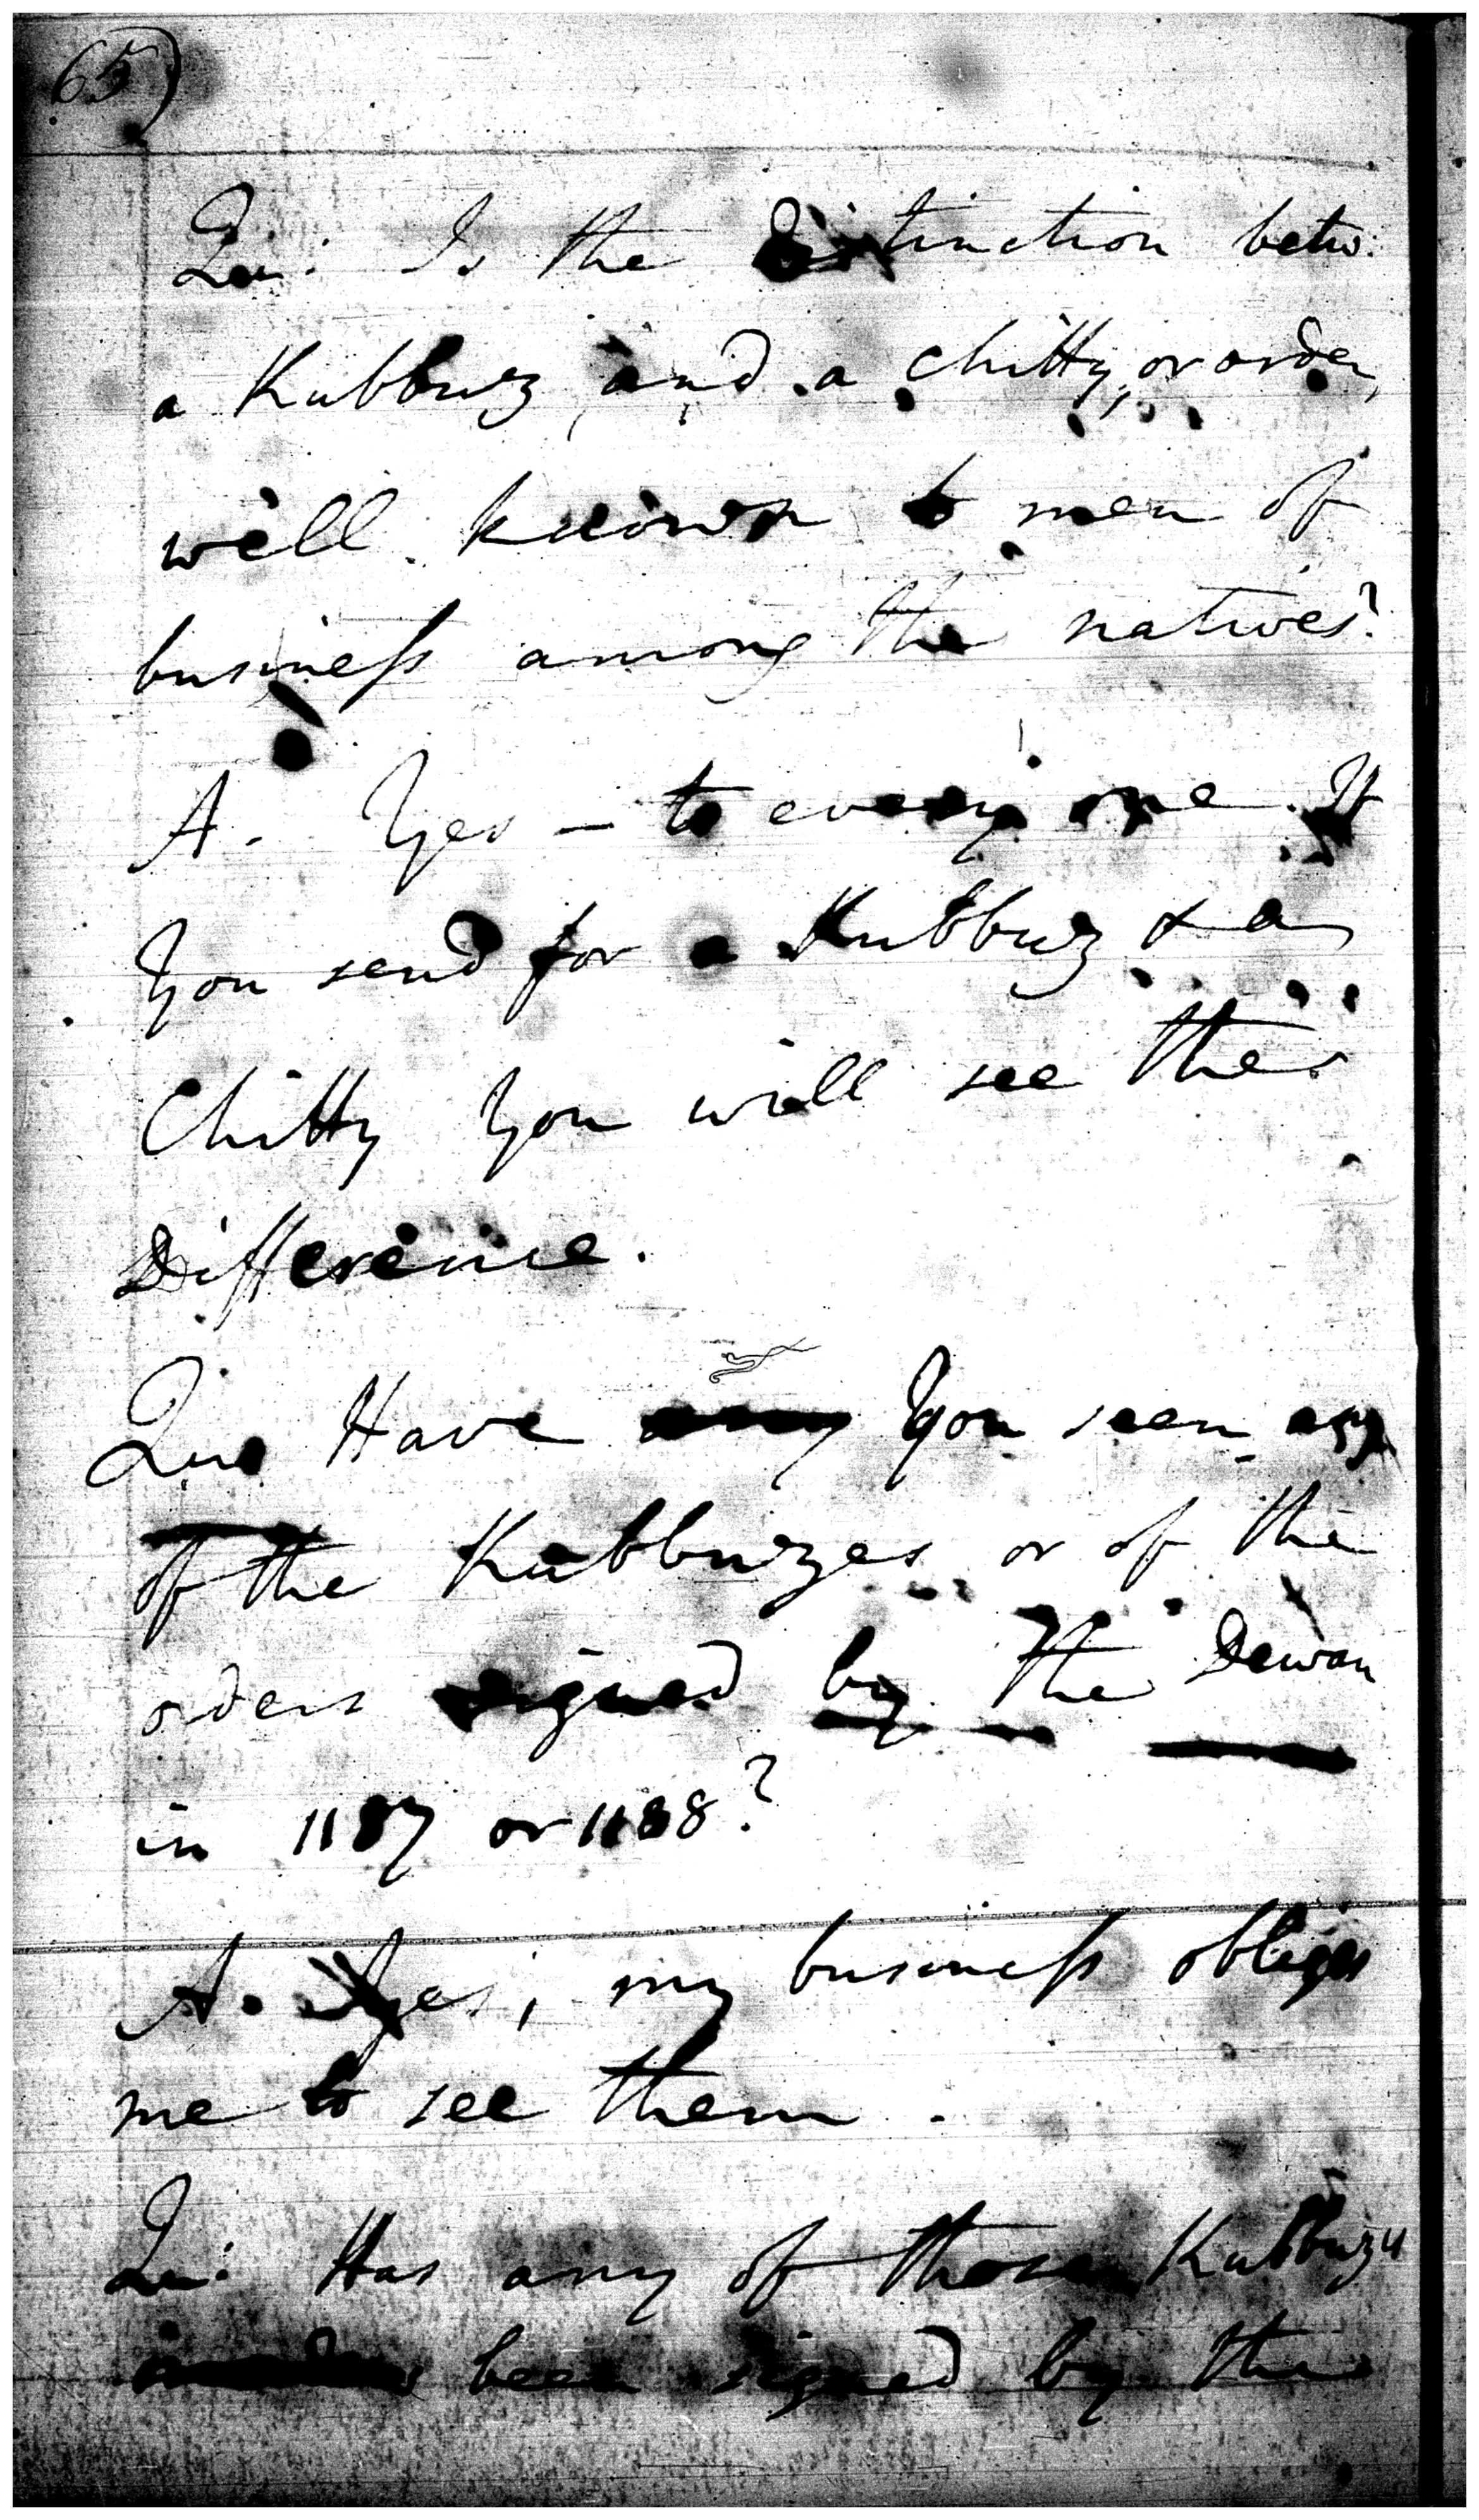 65)
Qu: Is the Distinction betw:
a Kubbuz, and a chitty, or order,
well known to men of
business among the natives?
A. Yes – to every one. If
You send for a Kubbuz & a
Chitty You will see the
Difference.
Qu: Have any You seen any
of the Kubbuzes or of the
orders signed by the Dewan
in 1187 or 1188?
A. Yes; my business obliges
me to see them.
Qu: Has any of those Kubbuzes
been signed by the